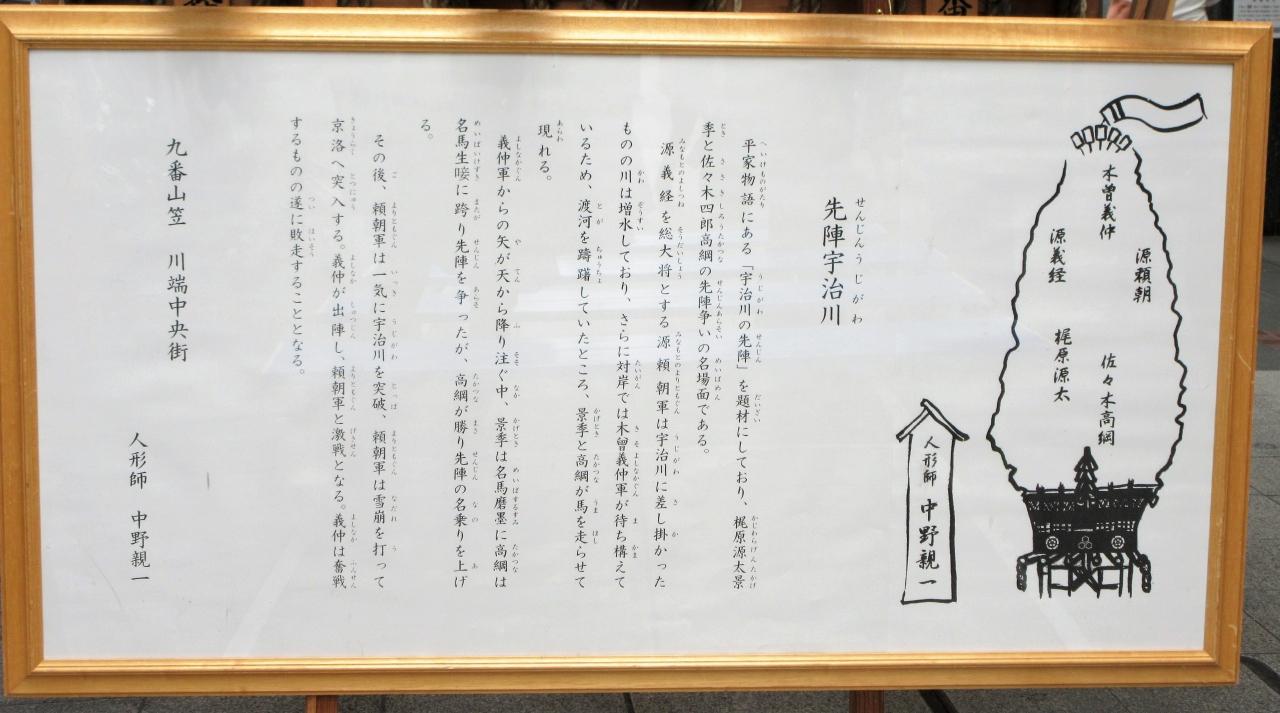 木曽義仲
源頼朝
源義経
佐々木高綱
梶原源太
人形師 中野親一
せんじんうじがわ
先陣宇治川
平家物語にある「宇治川の先陣」を題材にしており、梶原源太景
季と佐々木四郎高綱の先陣争いの名場面である。
源義経を総大将とする源頼朝軍は宇治川に差し掛かった
ものの川は増水しており、さらに対岸では木曾義仲軍が待ち構えて
いるため、渡河を躊躇していたところ、景季と高綱が馬を走らせて
現れる。
義仲軍からの矢が天から降り注ぐ中、景季は名馬磨墨に高綱は
名馬生唼に跨り先陣を争ったが、高綱が勝り先陣の名乗りを上げ
る。
その後、頼朝軍は一気に宇治川を突破、頼朝軍は雪崩を打って
京洛へ突入する。義仲が出陣し、頼朝軍と激戦となる。義仲は奮戦
するものの遂に敗走することとなる。
九番山笠 川端中央街
人形師 中野親一